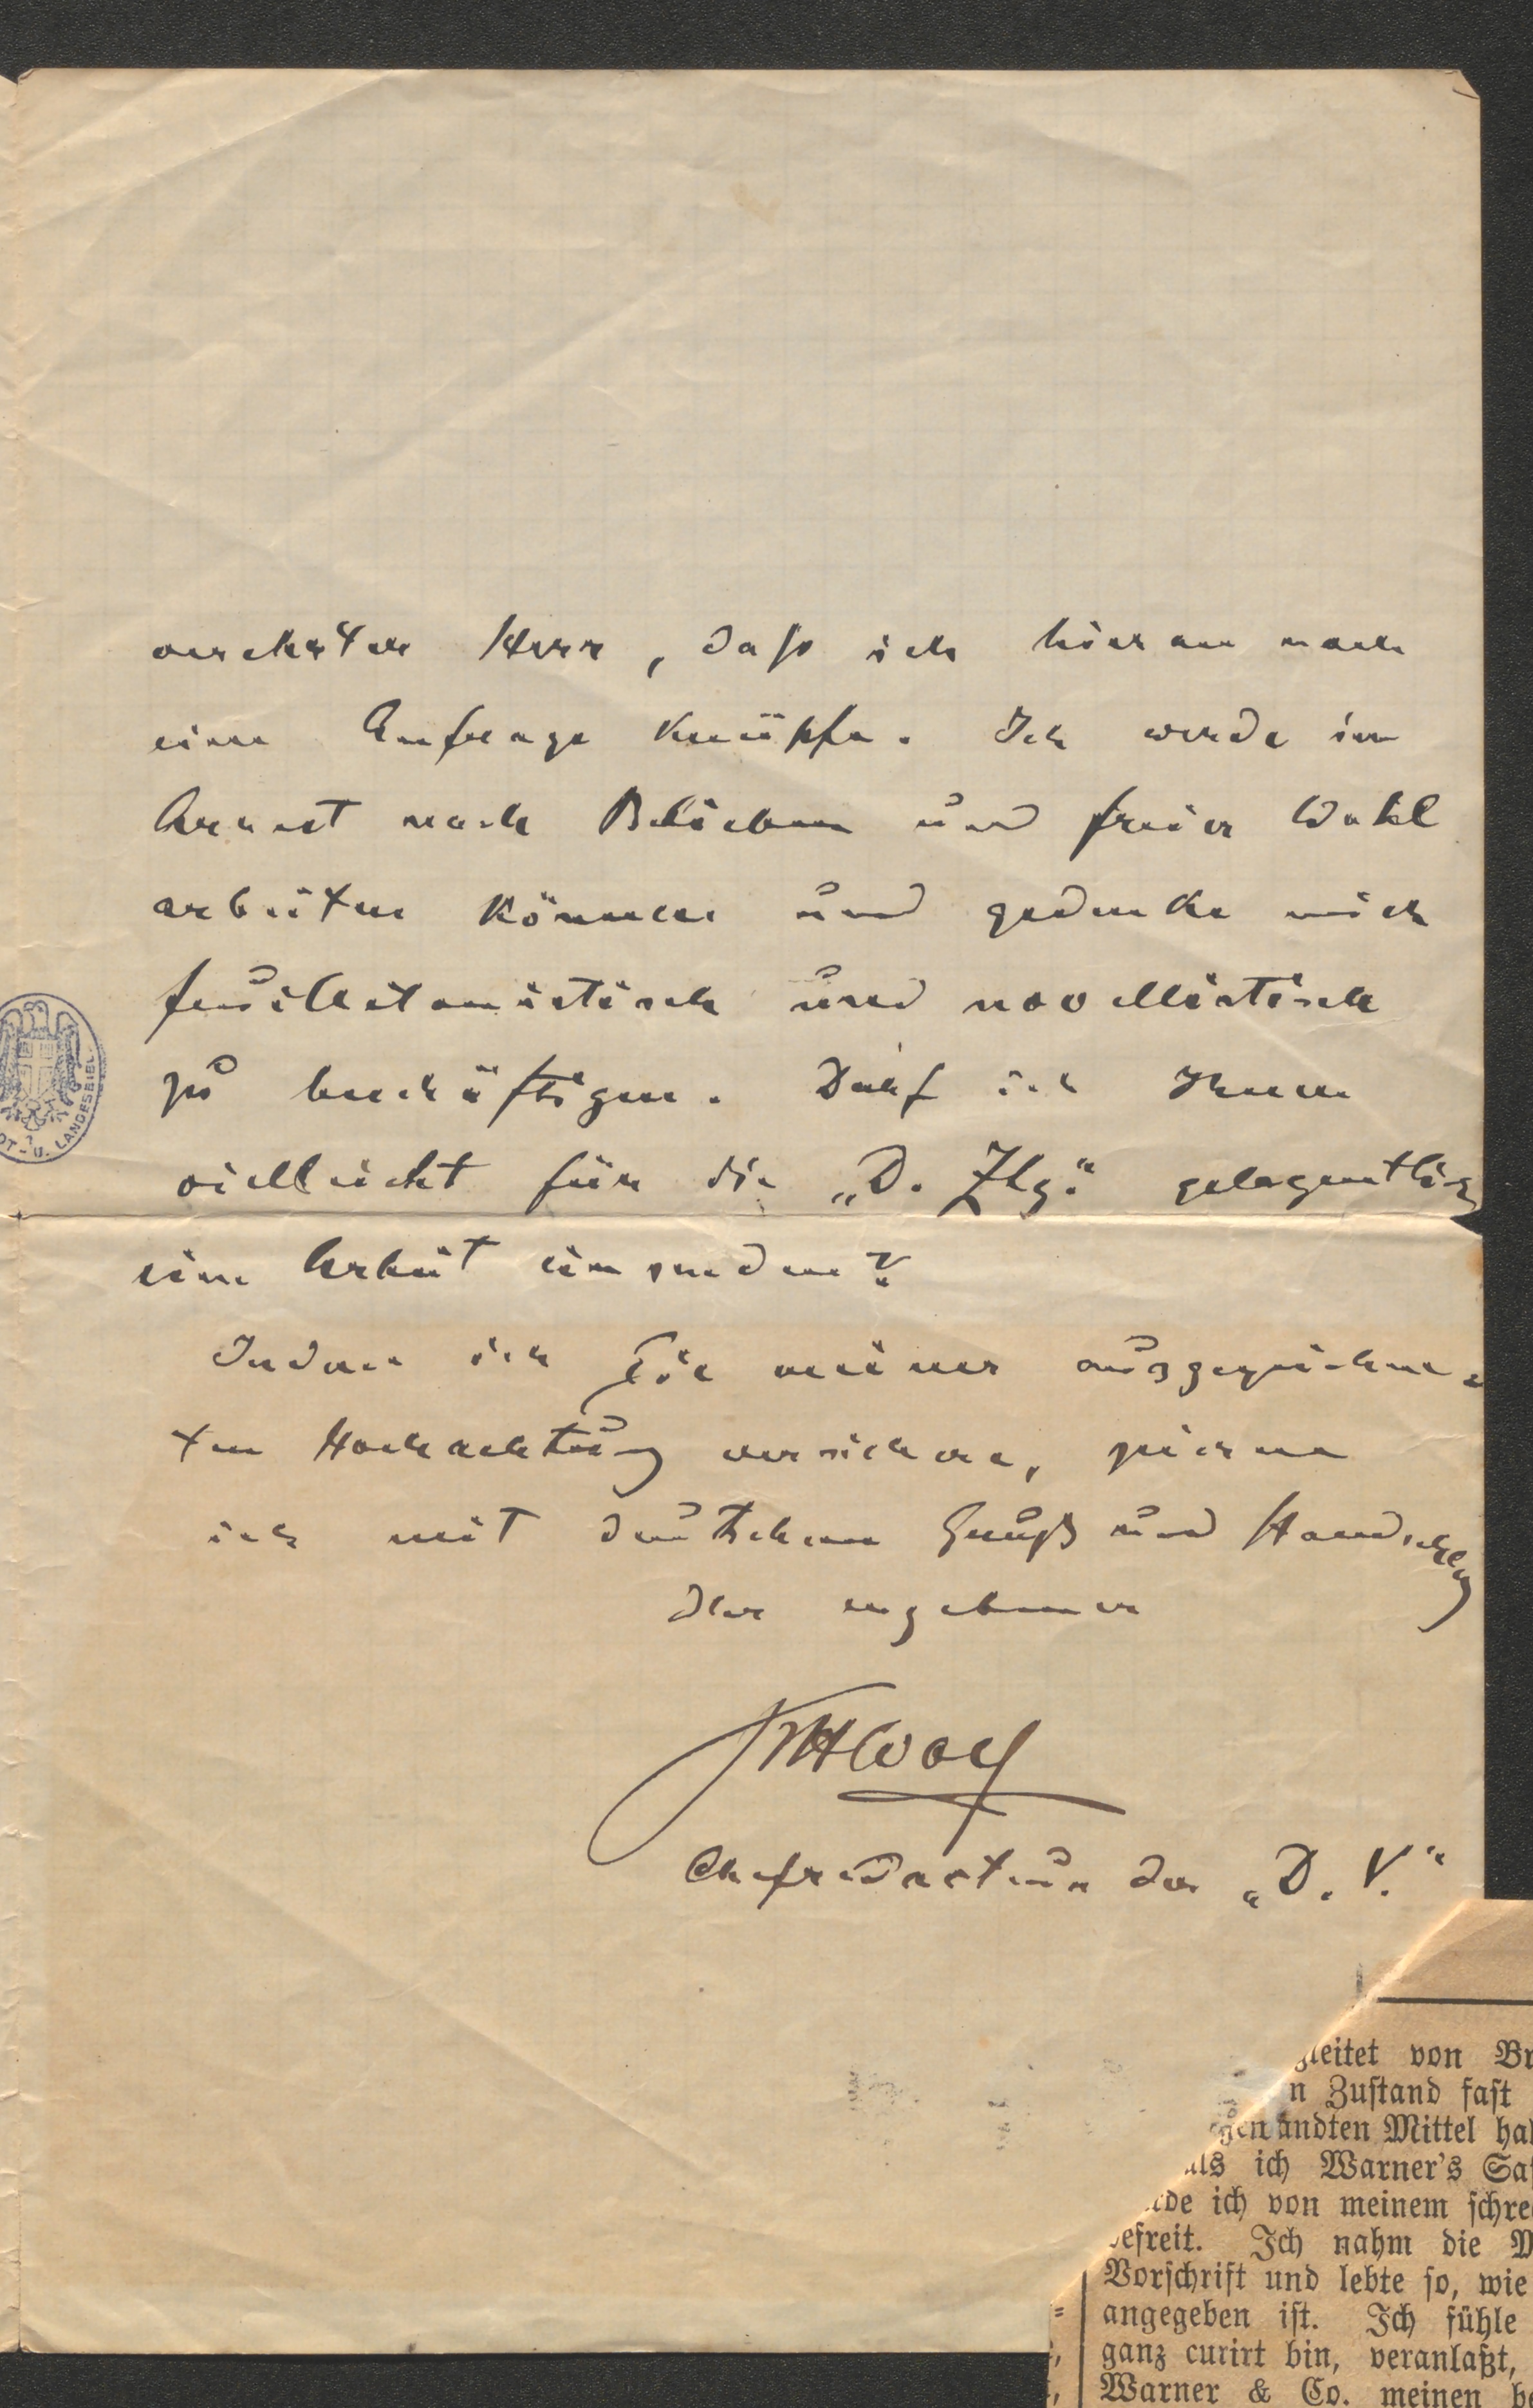 verehrter Herr, daß ich hieran noch
eine Anfrage knüpfe. Ich werde im
Arrest nach Belieben und freier Wahl
arbeiten können und gedenke mich
feuilletonistisch und novellistisch
zu beschäftigen. Darf ich Ihnen
vielleicht für die „D. Ztg." gelegentlich
eine Arbeit einsenden?
Indem ich Sie meiner ausgezeichne-
ten Hochachtung versichere, zeichne
ich mit deutschem Gruß und Handschlag
Ihr ergebener
KHWolf
Chefredacteur der „D. V."
DT- U. LANDESBIBL
gleitet von Br
n Zustand fast
gen andten Mittel hal
als ich Warner's Saf
rde ich von meinem schre
befreit. Ich nahm die M
Vorschrift und lebte so, wie
angegeben ist. Ich fühle
ganz curirt bin, veranlaßt,
Warner & Co. meinen he